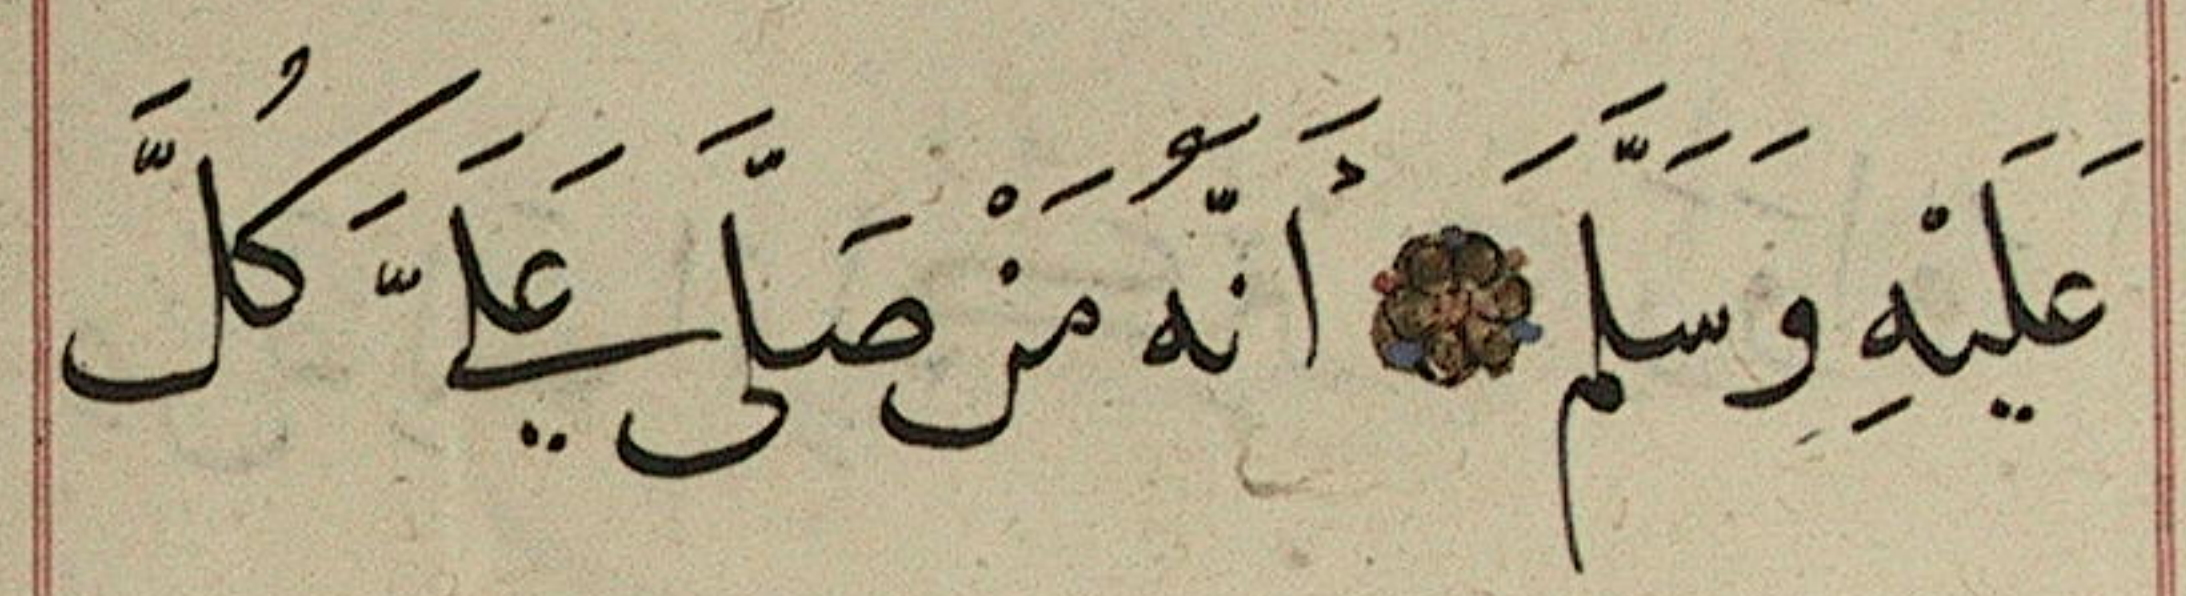 عَلَيْهِ وَسَلَّمَ أَنَّهُ مَنْ صَلَّى عَلَيَّ كُلَّ